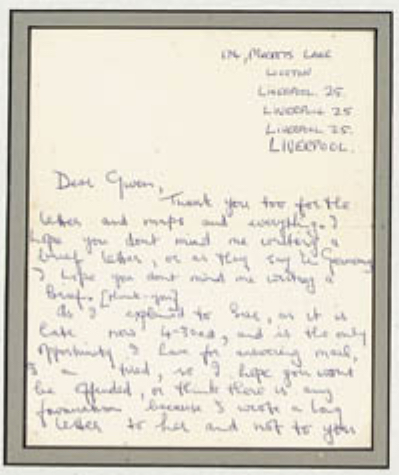 174, MACKETS LANE
WOOLTON
LIVERPOOL 25.
LIVERPOOL 25
LIVERPOOL 25.
LIVERPOOL.
Dear Gwen,
Thank you too for the
letter and maps and everything. I
hope you dont mind me writing a
brief letter, or as they say in Germany
I hope you dont mind me writing a
brief. [thank-you]
As I explained to Sue, as it is
late now 4-30am, and is the only
opportunity I have for answering mail,
I am tired, so I hope you wont
be offended, or think there is any
favouritism because I wrote a long
letter to her and not to you